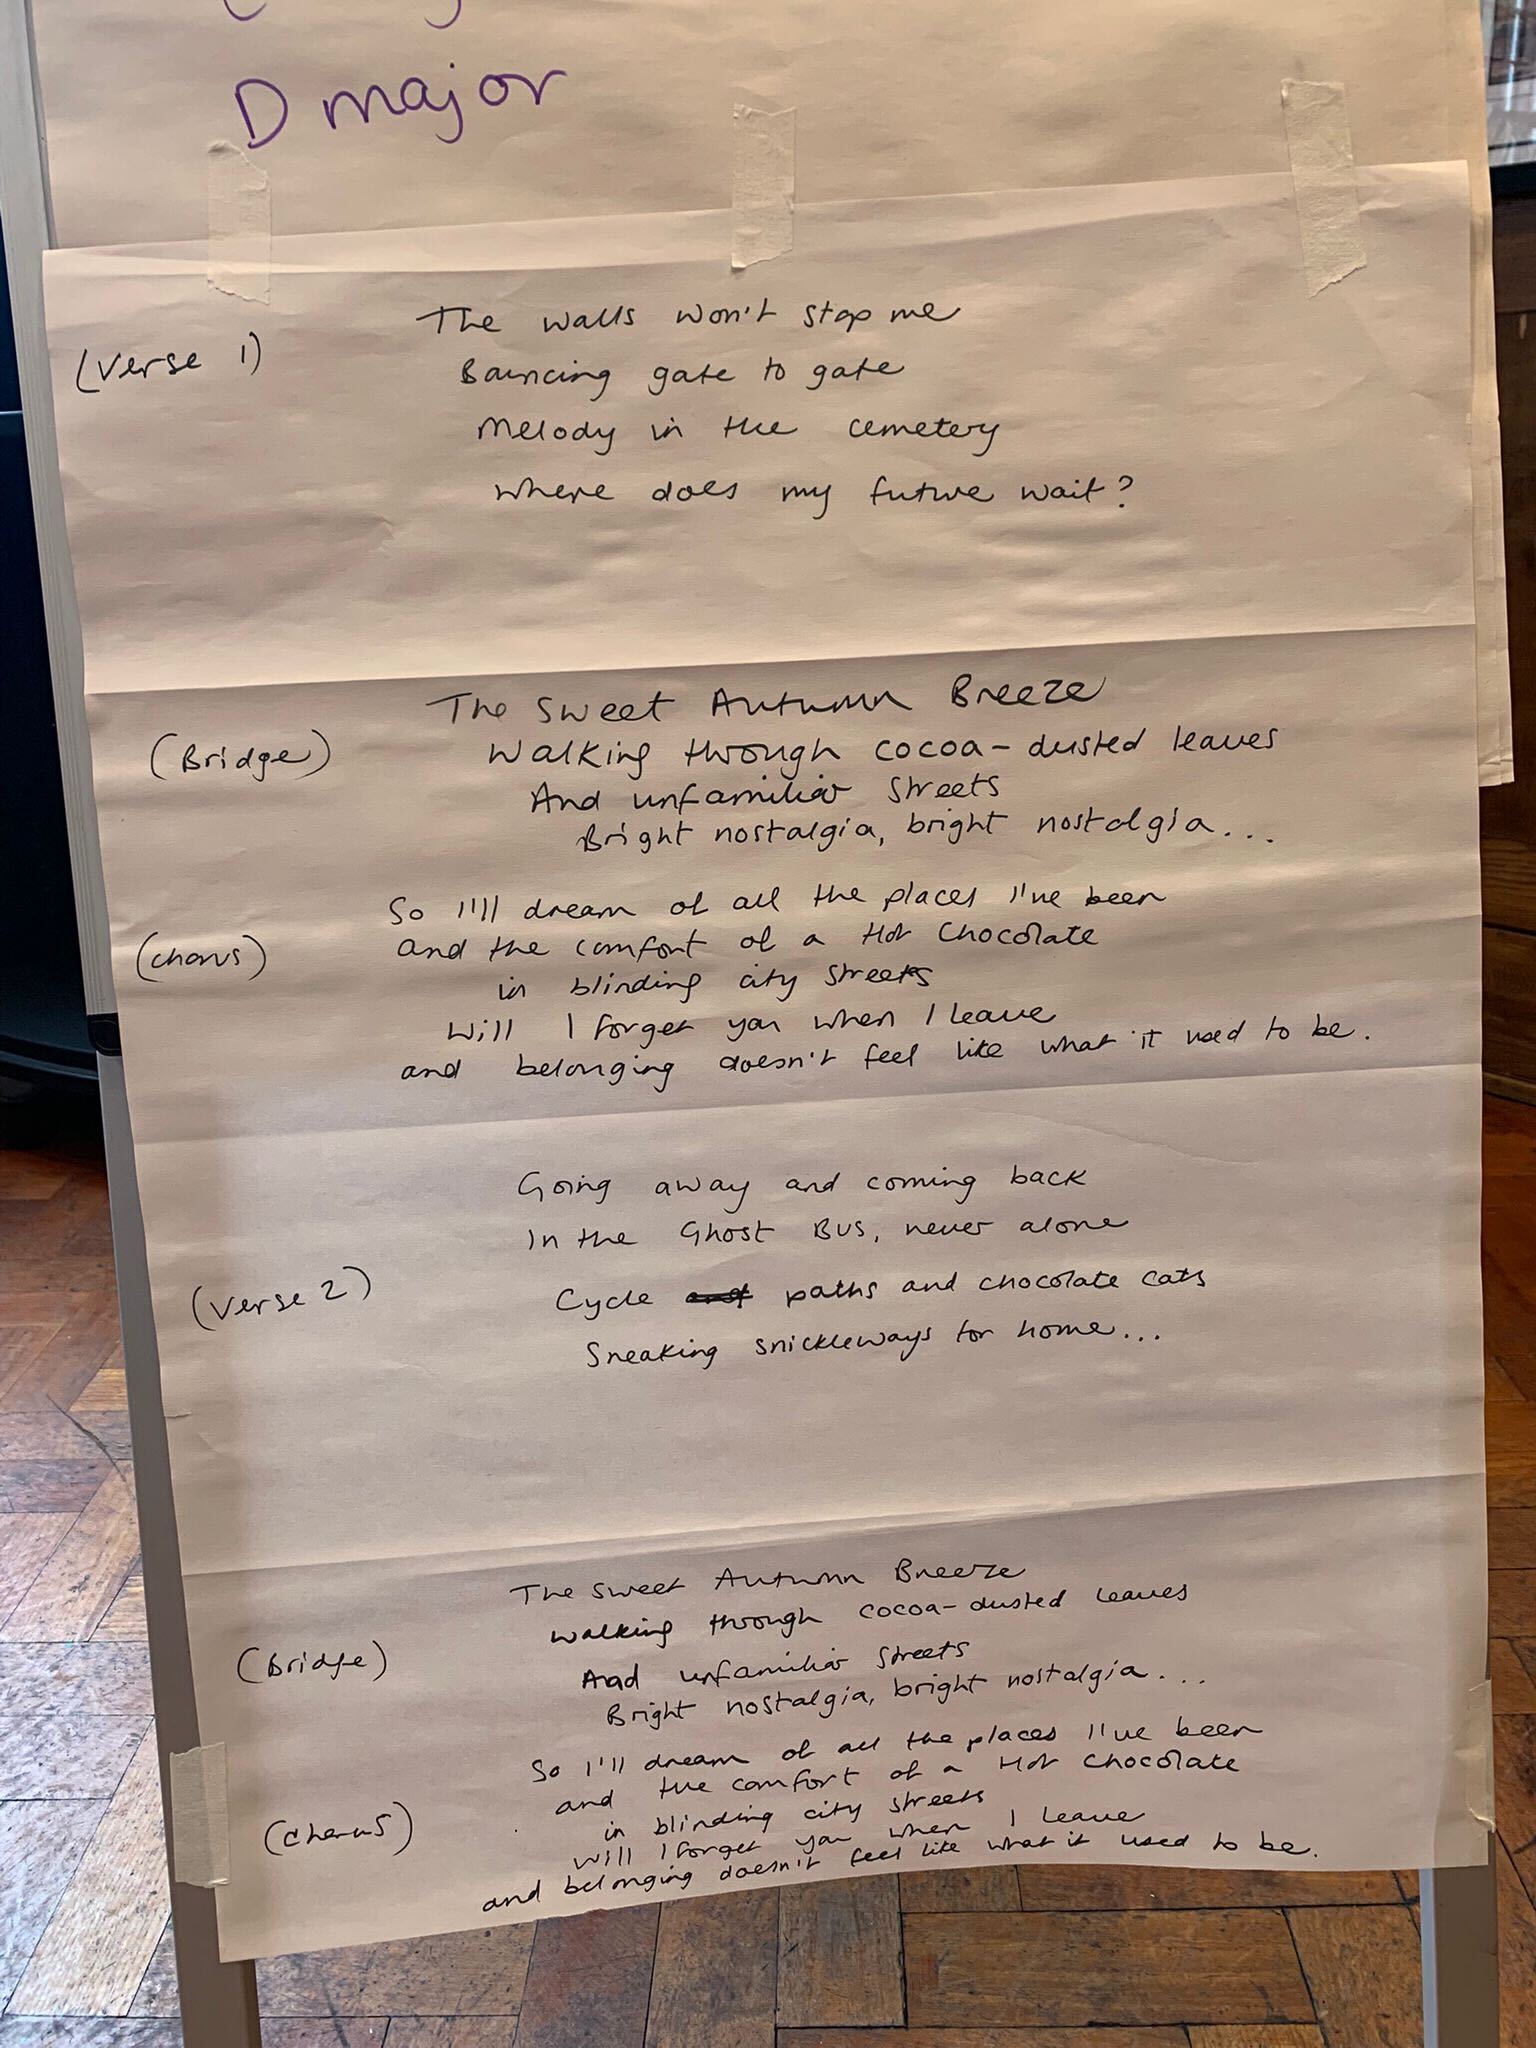 D major
(Verse 1)
The walls won't stop me
Bouncing gate to gate
Melody in the cemetery
Where does my future wait?
(Bridge)
The Sweet Autumn Breeze
Walking through cocoa-dusted leaves
And unfamiliar streets
Bright nostalgia, bright nostalgia...
(chorus)
So I'll dream of all the places I've been
and the comfort of a Hot Chocolate
in blinding city streets
Will I forget you when I leave
and belonging doesn't feel like what it used to be.
(Verse 2)
Going away and coming back
In the Ghost Bus, never alone
Cycle and paths and chocolate cats
Sneaking snickleways for home...
(Bridge)
The Sweet Autumn Breeze
Walking through cocoa-dusted leaves
And unfamiliar streets
Bright nostalgia, bright nostalgia...
(chorus)
So I'll dream of all the places I've been
and the comfort of a Hot Chocolate
in blinding city streets
Will I forget you when I leave
and belonging doesn't feel like what it used to be.